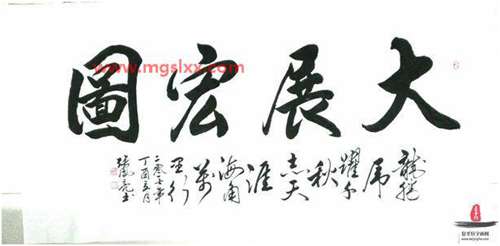 大展宏圖
www.mgslxx.com
龍騰
虎
躍千
秋
志天
涯
海角
萬
里行
二零一七年
丁酉五月